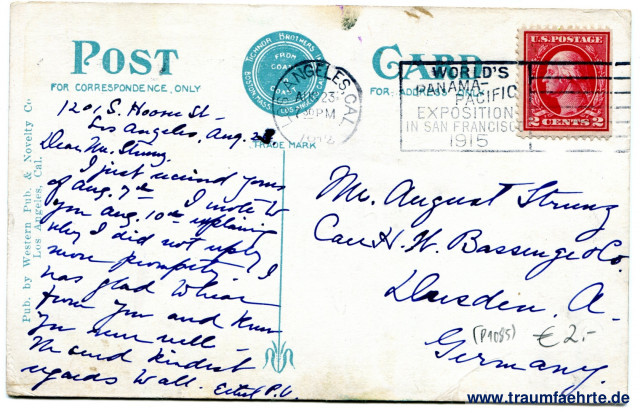 POST CARD
FOR CORRESPONDENCE ONLY
FOR ADDRESS ONLY
TICHNOR BROTHERS INC.
FROM
COAST
TO
COAST
BOSTON MASS. LOS ANGELES CAL.
TRADE MARK
LOS ANGELES, CAL.
AUG 23
PM
1912
WORLD'S
PANAMA-
PACIFIC
EXPOSITION
IN SAN FRANCISCO
1915
U.S. POSTAGE
2 CENTS 2
Pub. by Western Pub. & Novelty Co.
Los Angeles, Cal.
1201 S. Hoover St-
Los Angeles, Aug.
Dear Mr. Strunz.
I just received yours
of Aug. 7th I wrote to
you Aug. 10th explaining
why I did not reply
more promptly. I
was glad to hear
from you and know
you were well -
We send kindest
regards to all. Ethel P.V.
Mr. August Strunz
Care H. W. Bassenge & Co.
Dresden, A.
Germany.
(P1085) € 2.-
www.traumfaehrte.de